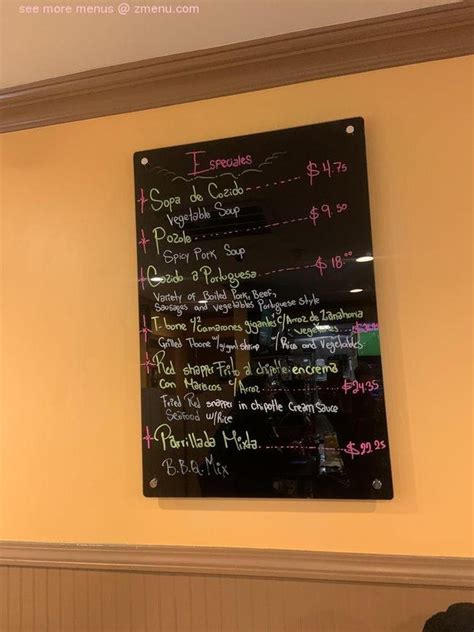 see more menus @ zmenu.com
Especiales
Sopa de Cozido $4.75
Vegetable Soup
Pozole $9.50
Spicy Pork Soup
Cozido a Portuguesa $18.00
Variety of Boiled Pork, Beef,
Sausages and Vegetables Portuguese Style
T-bone c/Camarones gigantes c/Arroz de Zanahoria
y vegetales
Grilled T-bone w/gigant shrimp w/Rice and Vegetables
Red snapper Frito al chipotle en crema
con Mariscos c/Arroz $24.35
Fried Red snapper in chipotle Cream Sauce
Seafood w/Rice
Parrillada Mixta $22.25
B.B.Q. Mix